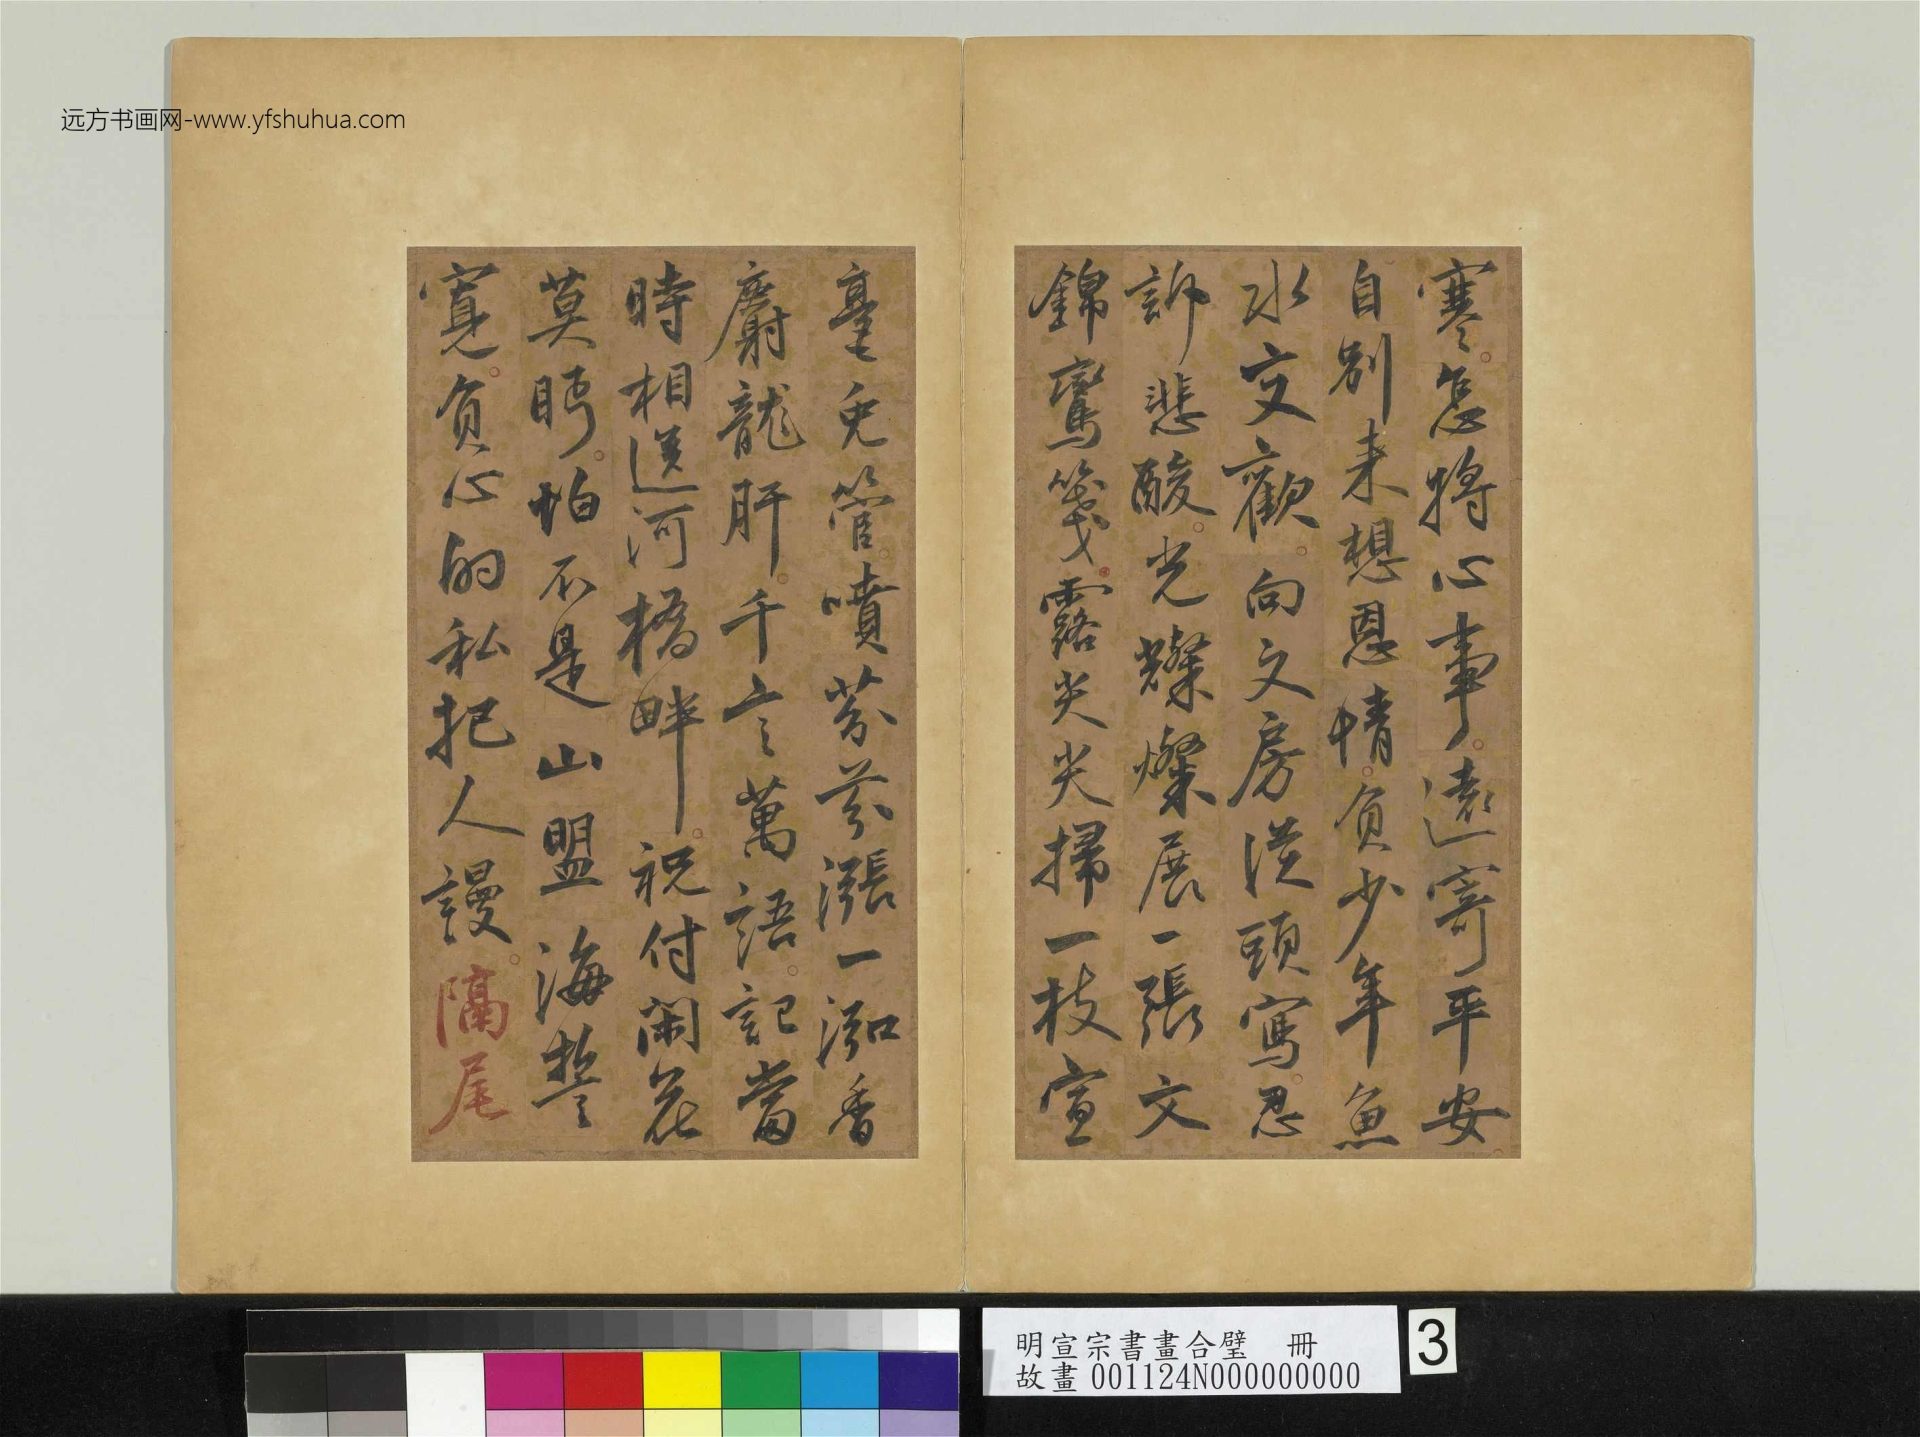 远方书画网-www.yfshuhua.com
寒怎將心事遠寄平安
自別来想恩情負少年魚
水交歡向文房從頭寫忍
訴悲酸光燦燦展一張文
錦鸞箋露尖尖掃一枝宣
毫兔管噴芬芬漲一泓香
麝龍肝千言萬語記當
時相送河橋畔祝付閑花
莫眄怕不是山盟海誓
寛負心的私把人謾隔
尾
明宣宗書畫合璧 冊
故畫 001124N000000000
3